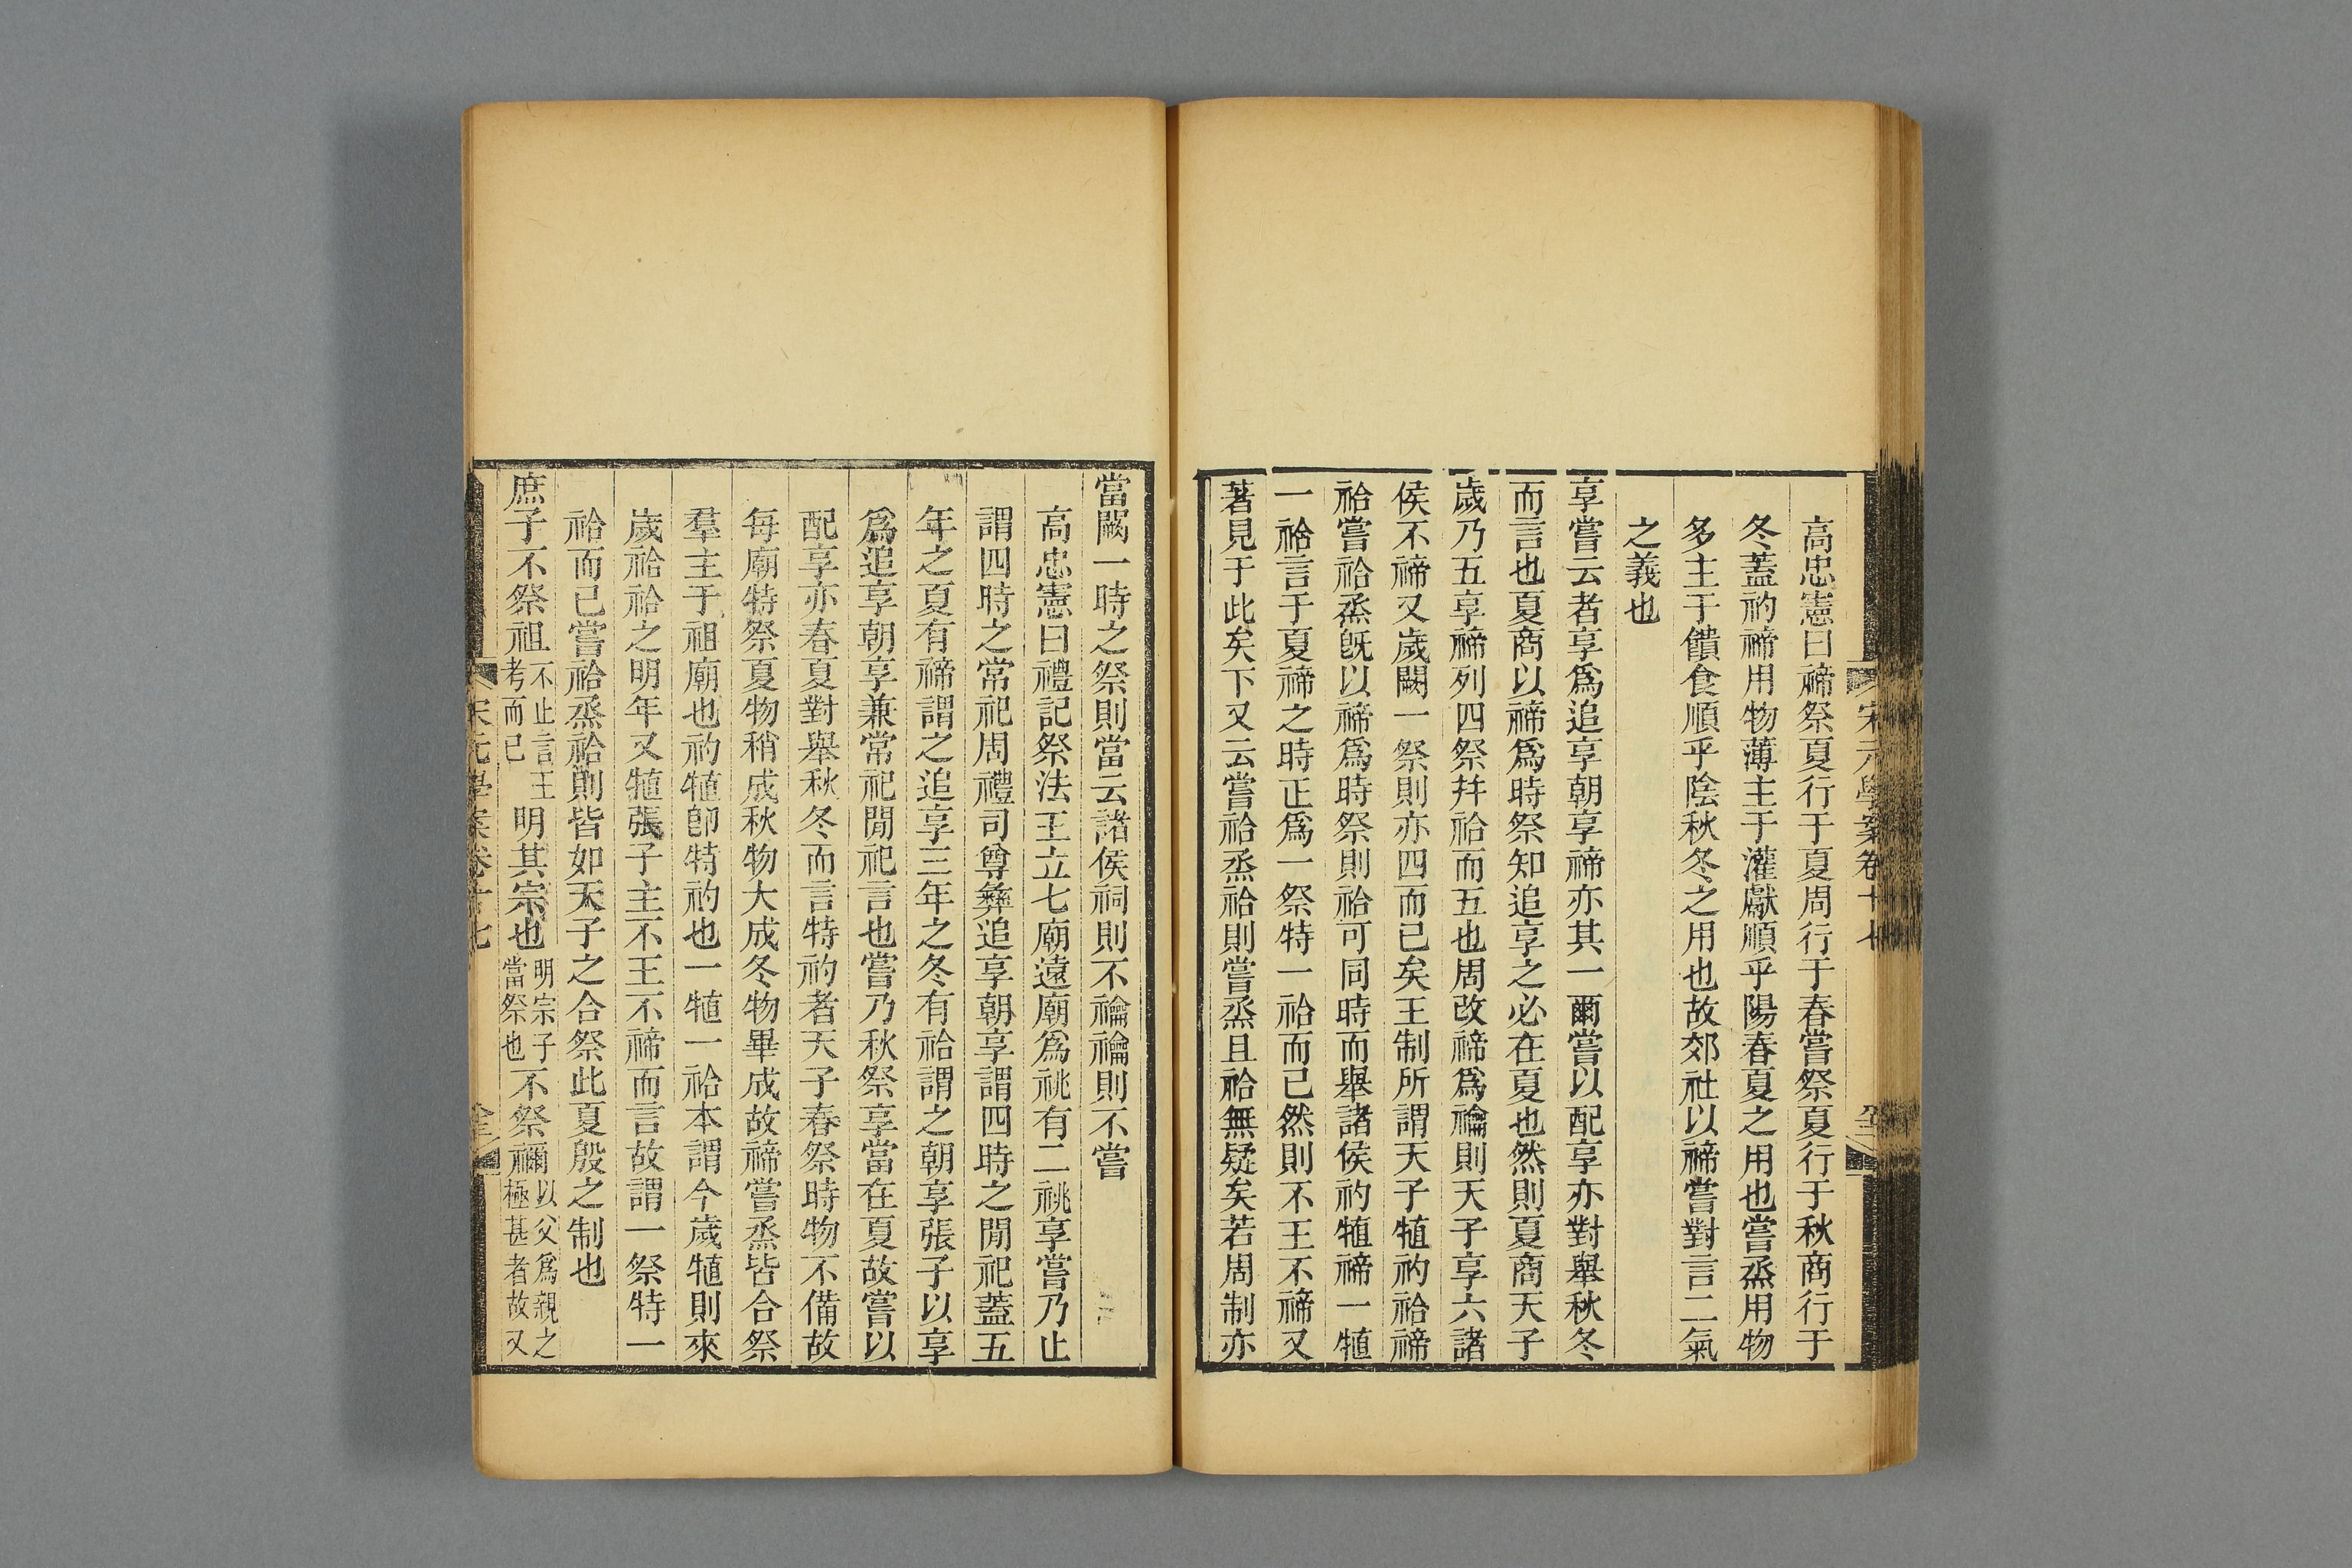 高忠憲曰禘祭夏行于夏周行于春嘗祭夏行于秋商行于
冬蓋礿禘用物薄主于灌獻順乎陽春夏之用也嘗烝用物
多主于饋食順乎陰秋冬之用也故郊社以禘嘗對言二氣
之義也
享嘗云者享爲追享朝享禘亦其一爾嘗以配享亦對舉秋冬
而言也夏商以禘爲時祭知追享之必在夏也然則夏商天子
歲乃五享禘列四祭幷祫而五也周改禘爲禴則天子享六諸
侯不禘又歲闕一祭則亦四而已矣王制所謂天子犆礿祫禘
祫嘗祫烝旣以禘爲時祭則祫可同時而舉諸侯礿犆禘一犆
一祫言于夏禘之時正爲一祭特一祫而已然則不王不禘又
著見于此矣下又云嘗祫烝祫則嘗烝且祫無疑矣若周制亦
宋元學案卷十七
當闕一時之祭則當云諸侯祠則不禴禴則不嘗
高忠憲曰禮記祭法王立七廟遠廟爲祧有二祧享嘗乃止
謂四時之常祀周禮司尊彝追享朝享謂四時之閒祀蓋五
年之夏有禘謂之追享三年之冬有祫謂之朝享張子以享
爲追享朝享兼常祀閒祀言也嘗乃秋祭享當在夏故嘗以
配享亦春夏對舉秋冬而言特礿者天子春祭時物不備故
每廟特祭夏物稍成秋物大成冬物畢成故禘嘗烝皆合祭
羣主于祖廟也礿犆卽特礿也一犆一祫本謂今歲犆則來
歲祫祫之明年又犆張子主不王不禘而言故謂一祭特一
祫而已嘗祫烝祫則皆如天子之合祭此夏殷之制也
庶子不祭祖不止言王考而已明其宗也明宗子當祭也不祭禰以父爲親之極甚者故又
宋元學案卷十七